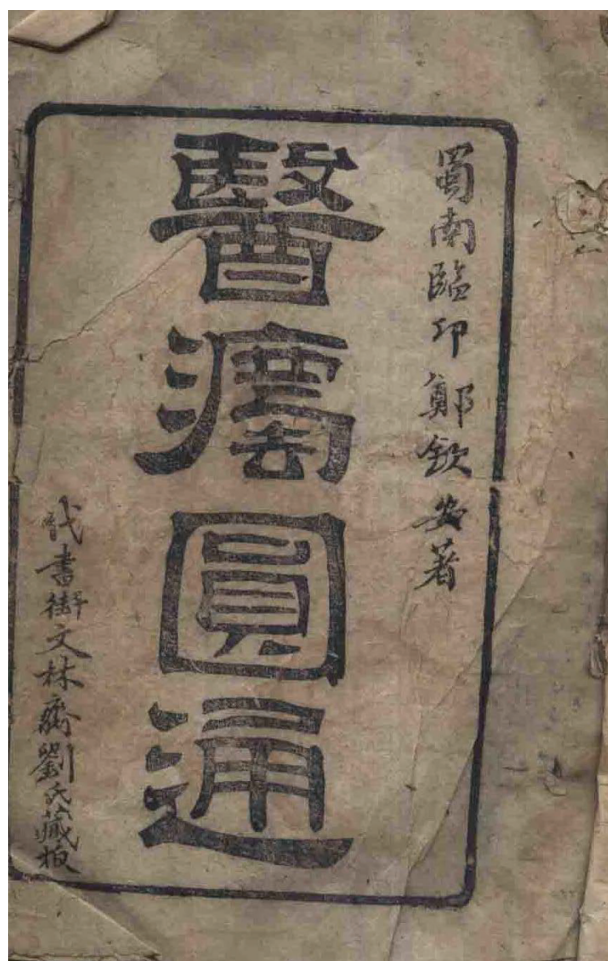 蜀南臨卭鄭欽安著
醫灋圓通
書街文林齋劉氏藏板